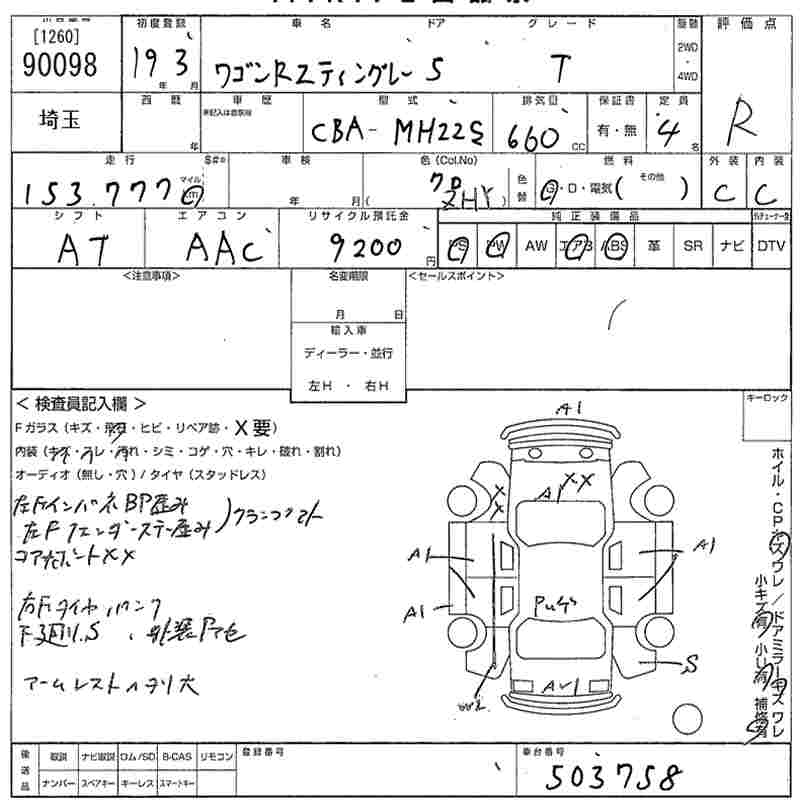 [1260]
90098
埼玉
初度登録
19 年 3 月
車名 ドア グレード
ワゴンRスティングレー 5 T
2WD
・
4WD
評価点
R
西暦
年
車歴
型式
CBA- MH22S
排気量
660 CC
保証書
有・無
定員
4 名
走行
153,777
マイル
車検
年 月
色(Col.No)
クロ
ZHY
色替
燃料
G・D・電気( その他 )
外装
C
内装
C
シフト
AT
エアコン
AAC
リサイクル預託金
9200 円
純正装備品
PS PW AW エアB ABS 革 SR ナビ DTV
<注意事項>
名変期限
月 日
輸入車
ディーラー・並行
左H ・ 右H
<セールスポイント>
キーロック
<検査員記入欄>
Fガラス(キズ・飛石・ヒビ・リペア跡・X要)
内装(キズ・スレ・汚れ・シミ・コゲ・穴・キレ・破れ・割れ)
オーディオ(無し・穴)/タイヤ(スタッドレス)
左FインパネBP歪み
左Fフェンダーステー歪み
コアサポートXX
右Fタイヤパンク
下廻りS
アームレストヘタリ大
A1
XX
A1
X
X
A1
A1
A1
Pらち
S
AU1
ホイル・CPキズワレ/ドアミラーキズワレ
小キズ有 小凹有 補修有
後送品
取説 ナビ取説 ロム/SD B-CAS リモコン
ナンバー スペアキー キーレス スマートキー
登録番号
車台番号
503758